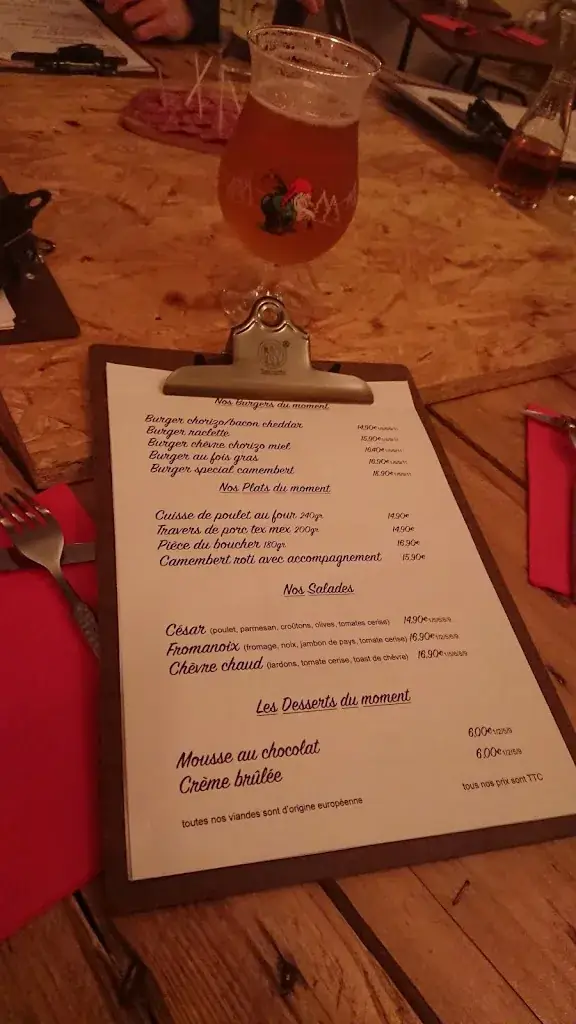 Nos Burgers du moment
Burger chorizo/bacon cheddar 14.90€
Burger raclette 15.90€
Burger chèvre chorizo miel
Burger au fois gras 16.90€
Burger special camembert 16.90€
Nos Plats du moment
Cuisse de poulet au four 240gr 14.90€
Travers de porc tex mex 200gr 14.90€
Pièce du boucher 180gr 16.90€
Camembert roti avec accompagnement 15.90€
Nos Salades
César (poulet, parmesan, croûtons, olives, tomates cerise) 14.90€
Fromanoix (fromage, noix, jambon de pays, tomate cerise) 16.90€
Chèvre chaud (lardons, tomate cerise, toast de chèvre) 16.90€
Les Desserts du moment
Mousse au chocolat 6.00€ 1/2/5/9
Crème brûlée 6.00€ 1/2/5/9
toutes nos viandes sont d'origine européenne
tous nos prix sont TTC